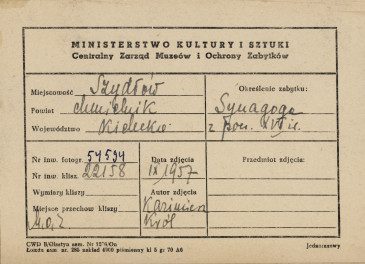 MINISTERSTWO KULTURY I SZTUKI
Centralny Zarząd Muzeów i Ochrony Zabytków
Miejscowość Szydłów
Powiat chmielnik
Województwo Kieleckie
Określenie zabytku:
Synagoga
z poł. XVI w.
Nr inw. fotogr. 54594
Nr inw. klisz. 22158
Wymiary kliszy
Miejsce przechow kliszy
M.O.Z.
Data zdjęcia
IX 1957
Autor zdjęcia
Kazimierz
Król
Przedmiot zdjęcia:
CWD R/Olsztyn zam. Nr
Łomża zam nr. 285 nakład 4000 piśmienny kl 5 g: 70 A6
Jednorazowy